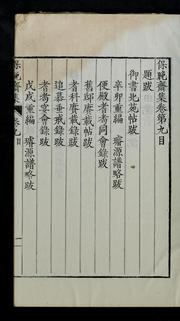 保晚齋集卷第九目
題跋
御書北苑帖跋
辛卯重編 璿源譜略跋
便殿耆耉同會錄跋
舊邸賡載帖跋
耆耉賡載錄跋
追慕垂戒錄跋
耆耉宴會錄跋
戊戌重編 璿源譜略跋
保晚齋集 卷九目 一